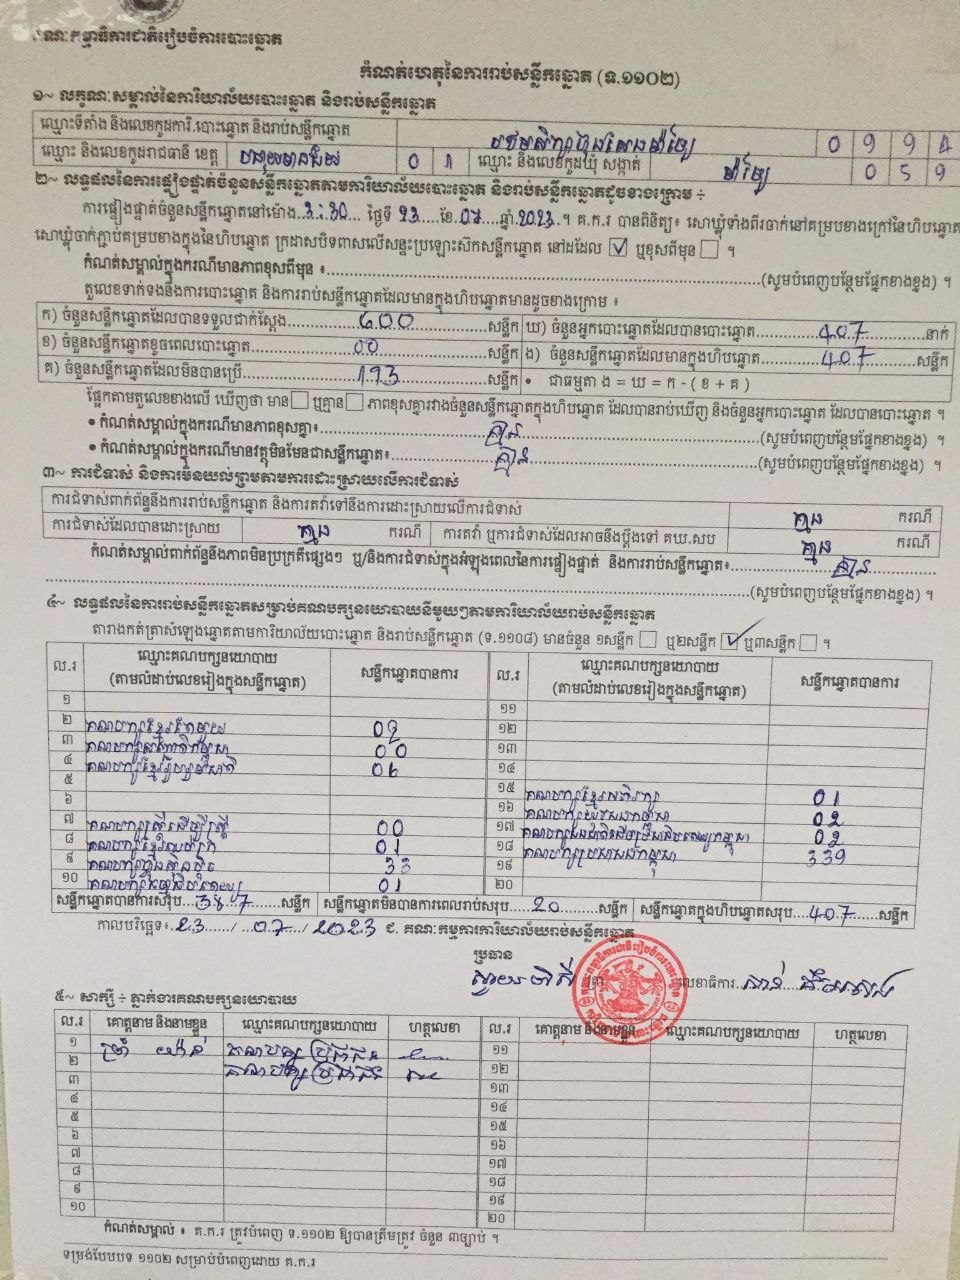 គណៈកម្មាធិការជាតិរៀបចំការបោះឆ្នោត
កំណត់ហេតុនៃការរាប់សន្លឹកឆ្នោត (ទ.១១០២)
១~ លក្ខណៈសម្គាល់នៃការិយាល័យបោះឆ្នោត និងរាប់សន្លឹកឆ្នោត
ឈ្មោះទីតាំង និងលេខកូដការិ.បោះឆ្នោត និងរាប់សន្លឹកឆ្នោត 0 9 9 4
ឈ្មោះ និងលេខកូដរាជធានី ខេត្ត បន្ទាយមានជ័យ 0 1 ឈ្មោះ និងលេខកូដឃុំ សង្កាត់ 0 5 9
២~ លទ្ធផលនៃការផ្ទៀងផ្ទាត់ចំនួនសន្លឹកឆ្នោតតាមការិយាល័យបោះឆ្នោត និងរាប់សន្លឹកឆ្នោតដូចខាងក្រោម ÷
ការផ្ទៀងផ្ទាត់ចំនួនសន្លឹកឆ្នោតនៅម៉ោង 3:30 ថ្ងៃទី 23 ខែ 07 ឆ្នាំ 2023 ។ គ.ក.រ បានពិនិត្យ៖ សោឃ្លុំទាំងពីរចាក់នៅគម្របខាងក្រៅនៃហិបឆ្នោត
សោឃ្លុំចាក់ភ្ជាប់គម្របខាងក្នុងនៃហិបឆ្នោត ក្រដាសបិទពាសលើសន្ទះប្រឡោះស៊កសន្លឹកឆ្នោត នៅដដែល ☑ ឬខុសពីមុន ☐ ។
កំណត់សម្គាល់ក្នុងករណីមានភាពខុសពីមុន ៖ (សូមបំពេញបន្ថែមផ្នែកខាងខ្នង) ។
តួលេខទាក់ទងនឹងការបោះឆ្នោត និងការរាប់សន្លឹកឆ្នោតដែលមានក្នុងហិបឆ្នោតមានដូចខាងក្រោម ៖
ក) ចំនួនសន្លឹកឆ្នោតដែលបានទទួលជាក់ស្តែង 600 សន្លឹក ឃ) ចំនួនអ្នកបោះឆ្នោតដែលបានបោះឆ្នោត 407 នាក់
ខ) ចំនួនសន្លឹកឆ្នោតខូចពេលបោះឆ្នោត 00 សន្លឹក ង) ចំនួនសន្លឹកឆ្នោតដែលមានក្នុងហិបឆ្នោត 407 សន្លឹក
គ) ចំនួនសន្លឹកឆ្នោតដែលមិនបានប្រើ 193 សន្លឹក • ជាធម្មតា ង = ឃ = ក - ( ខ + គ )
ផ្អែកតាមតួលេខខាងលើ ឃើញថា មាន ☐ ឬគ្មាន ☐ ភាពខុសគ្នារវាងចំនួនសន្លឹកឆ្នោតក្នុងហិបឆ្នោត ដែលបានរាប់ឃើញ និងចំនួនអ្នកបោះឆ្នោត ដែលបានបោះឆ្នោត ។
• កំណត់សម្គាល់ក្នុងករណីមានភាពខុសគ្នា៖ គ្មាន (សូមបំពេញបន្ថែមផ្នែកខាងខ្នង) ។
• កំណត់សម្គាល់ក្នុងករណីមានវត្ថុមិនមែនជាសន្លឹកឆ្នោត៖ គ្មាន (សូមបំពេញបន្ថែមផ្នែកខាងខ្នង) ។
៣~ ការជំទាស់ និងការមិនយល់ព្រមតាមការដោះស្រាយលើការជំទាស់
ការជំទាស់ពាក់ព័ន្ធនឹងការរាប់សន្លឹកឆ្នោត និងការតវ៉ាទៅនឹងការដោះស្រាយលើការជំទាស់ គ្មាន ករណី
ការជំទាស់ដែលបានដោះស្រាយ គ្មាន ករណី ការតវ៉ា ឬការជំទាស់ដែលអាចនឹងប្តឹងទៅ គឃ.សប គ្មាន ករណី
កំណត់សម្គាល់ពាក់ព័ន្ធនឹងភាពមិនប្រក្រតីផ្សេងៗ ឬ/និងការជំទាស់ក្នុងអំឡុងពេលនៃការផ្ទៀងផ្ទាត់ និងការរាប់សន្លឹកឆ្នោត៖ គ្មាន
(សូមបំពេញបន្ថែមផ្នែកខាងខ្នង) ។
៤~ លទ្ធផលនៃការរាប់សន្លឹកឆ្នោតសម្រាប់គណបក្សនយោបាយនីមួយៗតាមការិយាល័យរាប់សន្លឹកឆ្នោត
តារាងកត់ត្រាសំឡេងឆ្នោតតាមការិយាល័យបោះឆ្នោត និងរាប់សន្លឹកឆ្នោត (ទ.១១០៨) មានចំនួន ១សន្លឹក ☐ ឬ២សន្លឹក ☑ ឬ៣សន្លឹក ☐ ។
ល.រ ឈ្មោះគណបក្សនយោបាយ (តាមលំដាប់លេខរៀងក្នុងសន្លឹកឆ្នោត) សន្លឹកឆ្នោតបានការ ល.រ ឈ្មោះគណបក្សនយោបាយ (តាមលំដាប់លេខរៀងក្នុងសន្លឹកឆ្នោត) សន្លឹកឆ្នោតបានការ
១ ១១
២ គណបក្សខ្មែរតែមួយ 02 ១២
៣ 00 ១៣
៤ 06 ១៤
៥ ១៥ 01
៦ ១៦ 02
៧ គណបក្សស្ត្រីដើម្បីស្ត្រី 00 ១៧ 02
៨ 01 ១៨ គណបក្សប្រជាជនកម្ពុជា 339
៩ គណបក្សហ្វ៊ុនស៊ិនប៉ិច 33 ១៩
១០ 01 ២០
សន្លឹកឆ្នោតបានការសរុប 387 សន្លឹក សន្លឹកឆ្នោតមិនបានការពេលរាប់សរុប 20 សន្លឹក សន្លឹកឆ្នោតក្នុងហិបឆ្នោតសរុប 407 សន្លឹក
កាលបរិច្ឆេទ៖ 23 / 07 / 2023 ជ. គណៈកម្មការការិយាល័យរាប់សន្លឹកឆ្នោត
ប្រធាន
លេខាធិការ
៥~ សាក្សី ÷ ភ្នាក់ងារគណបក្សនយោបាយ
ល.រ គោត្តនាម និងនាមខ្លួន ឈ្មោះគណបក្សនយោបាយ ហត្ថលេខា ល.រ គោត្តនាម និងនាមខ្លួន ឈ្មោះគណបក្សនយោបាយ ហត្ថលេខា
១ គណបក្ស ប្រជាជន ១១
២ គណបក្ស ប្រជាជន ១២
៣ ១៣
៤ ១៤
៥ ១៥
៦ ១៦
៧ ១៧
៨ ១៨
៩ ១៩
១០ ២០
កំណត់សម្គាល់ ៖ គ.ក.រ ត្រូវបំពេញ ទ.១១០២ ឱ្យបានត្រឹមត្រូវ ចំនួន ៣ច្បាប់ ។
ទម្រង់បែបបទ ១១០២ សម្រាប់បំពេញដោយ គ.ក.រ